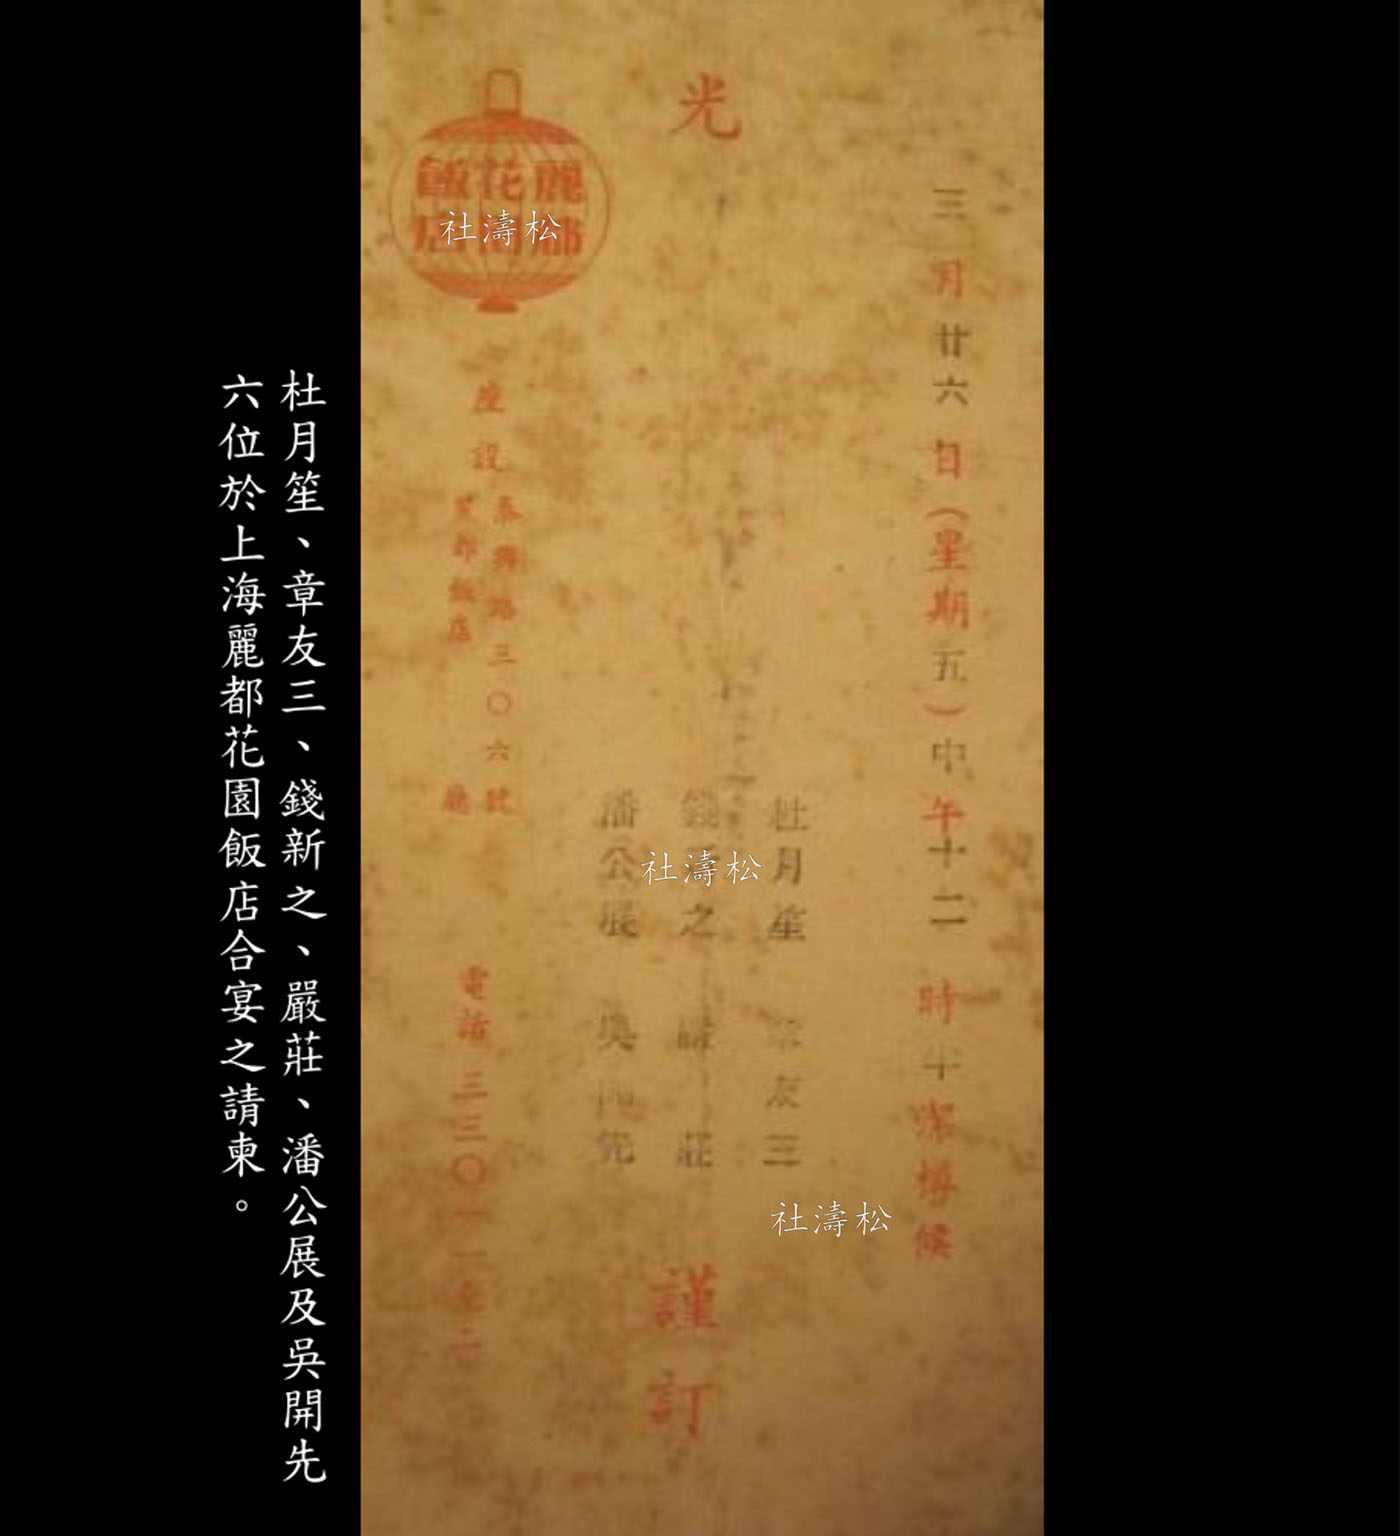 三月廿六日（星期五）中午十二時半潔樽候
光
杜月笙 章友三
錢新之 嚴莊
潘公展 吳開先
謹訂
麗都花園飯店
座設
泰興路三〇六號
麗都飯店 廳
電話 三三〇
社濤松
社濤松
社濤松
杜月笙、章友三、錢新之、嚴莊、潘公展及吳開先
六位於上海麗都花園飯店合宴之請柬。